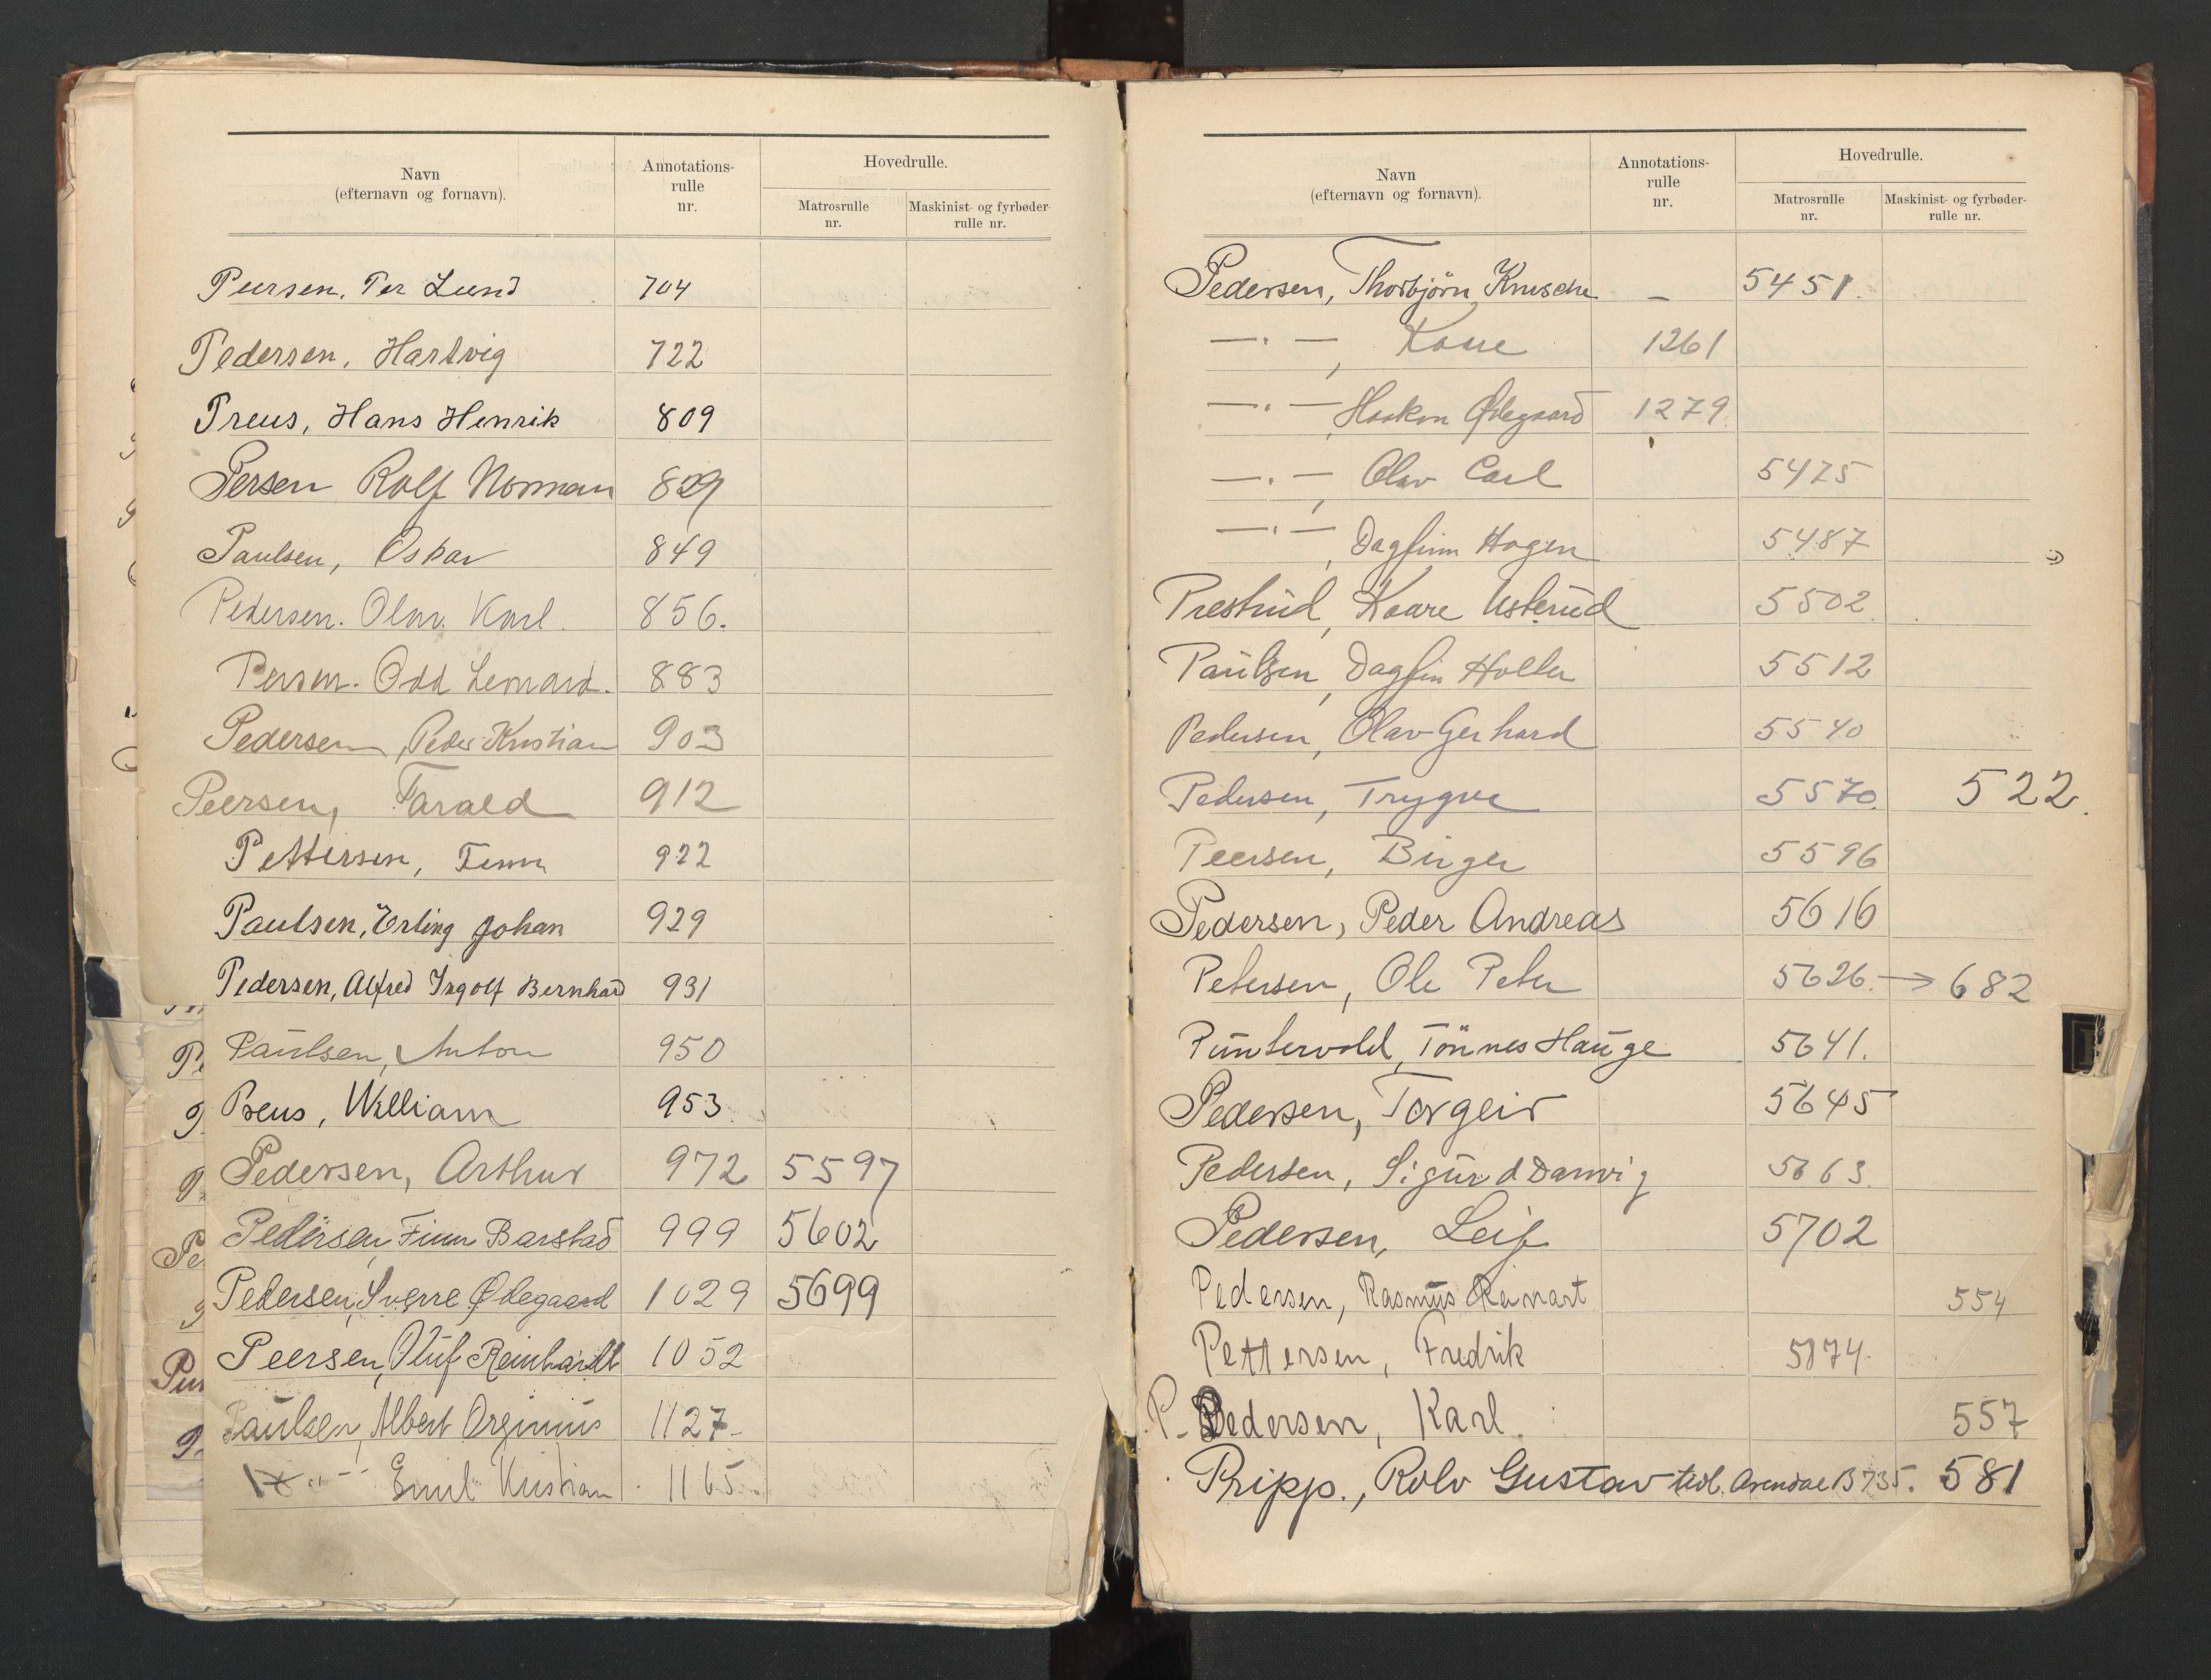 Navn
(efternavn og fornavn).
Annotations-
rulle
nr.
Hovedrulle.
Matrosrulle
nr.
Maskinist- og fyrbøder-
rulle nr.
Peersen, Per Lund 704
Pedersen, Hartvig 722
Preus, Hans Henrik 809
Persen Rolf Norman 829
Paulsen, Oskar 849
Pedersen. Olav. Karl. 856.
Persen. Odd Leonard. 883
Pedersen, Peder Kristian 903
Peersen, Tarald 912
Pettersen, Finn 922
Paulsen, Erling Johan 929
Pedersen, Alfred Ingolf Bernhard 931
Paulsen, Anton 950
Preus, William 953
Pedersen, Arthur 972 5597
Pedersen, Finn Barstad 999 5602
Pedersen, Sverre Ødegaard 1029 5699
Peersen, Oluf Reinhardt 1052
Paulsen, Albert 1127-
Emil Kristian 1165
Navn
(efternavn og fornavn).
Annotations-
rulle
nr.
Hovedrulle.
Matrosrulle
nr.
Maskinist- og fyrbøder-
rulle nr.
Pedersen, Thorbjørn — 5451.
—"—, Kåre 1261
—"—, Haakon Ødegaard 1279
—"—, Olav Carl 5475
—"—, Dagfinn Hagen 5487
Prestrud, Kaare Usterud 5502
Paulsen, Dagfin Holter 5512
Pedersen, Olav Gerhard 5540
Pedersen, Trygve 5570. 522.
Peersen, Birger 5596
Pedersen, Peder Andreas 5616
Petersen, Ole Peter 5626. → 682
Puntervold, Tönnes Hauge 5641.
Pedersen, Torgeir 5645
Pedersen, Sigurd Danvig 5663.
Pedersen, Leif 5702
Pedersen, Rasmus Reinart 554
Pettersen, Fredrik 5874
P. Pedersen, Karl. 557
Pripp., Rolv Gustav tidl. Arendal B 735. 581